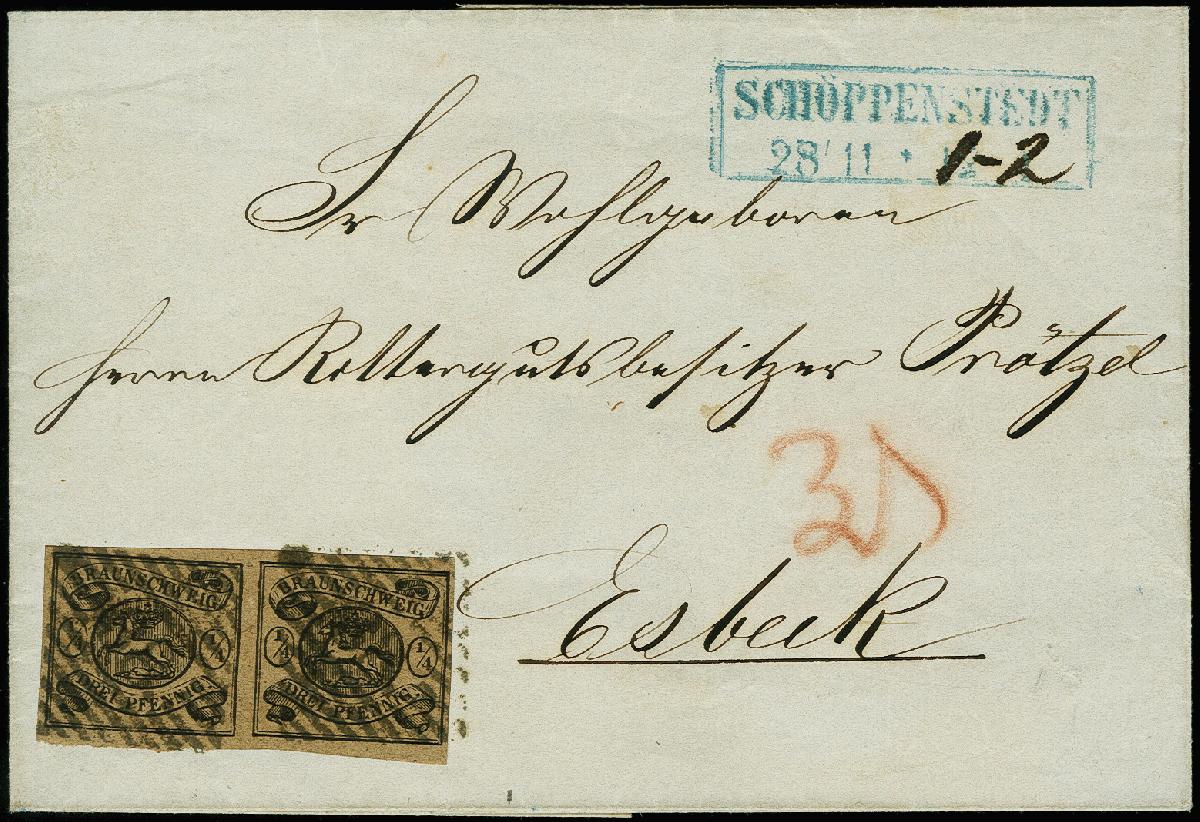 SCHÖPPENSTEDT
28/11 * 1-2
Sr Wohlgeboren
Herrn Rittergutsbesitzer Prötzel
3
Esbeck
BRAUNSCHWEIG BRAUNSCHWEIG
1/4 1/4 1/4 1/4
DREI PFENNIG DREI PFENNIG